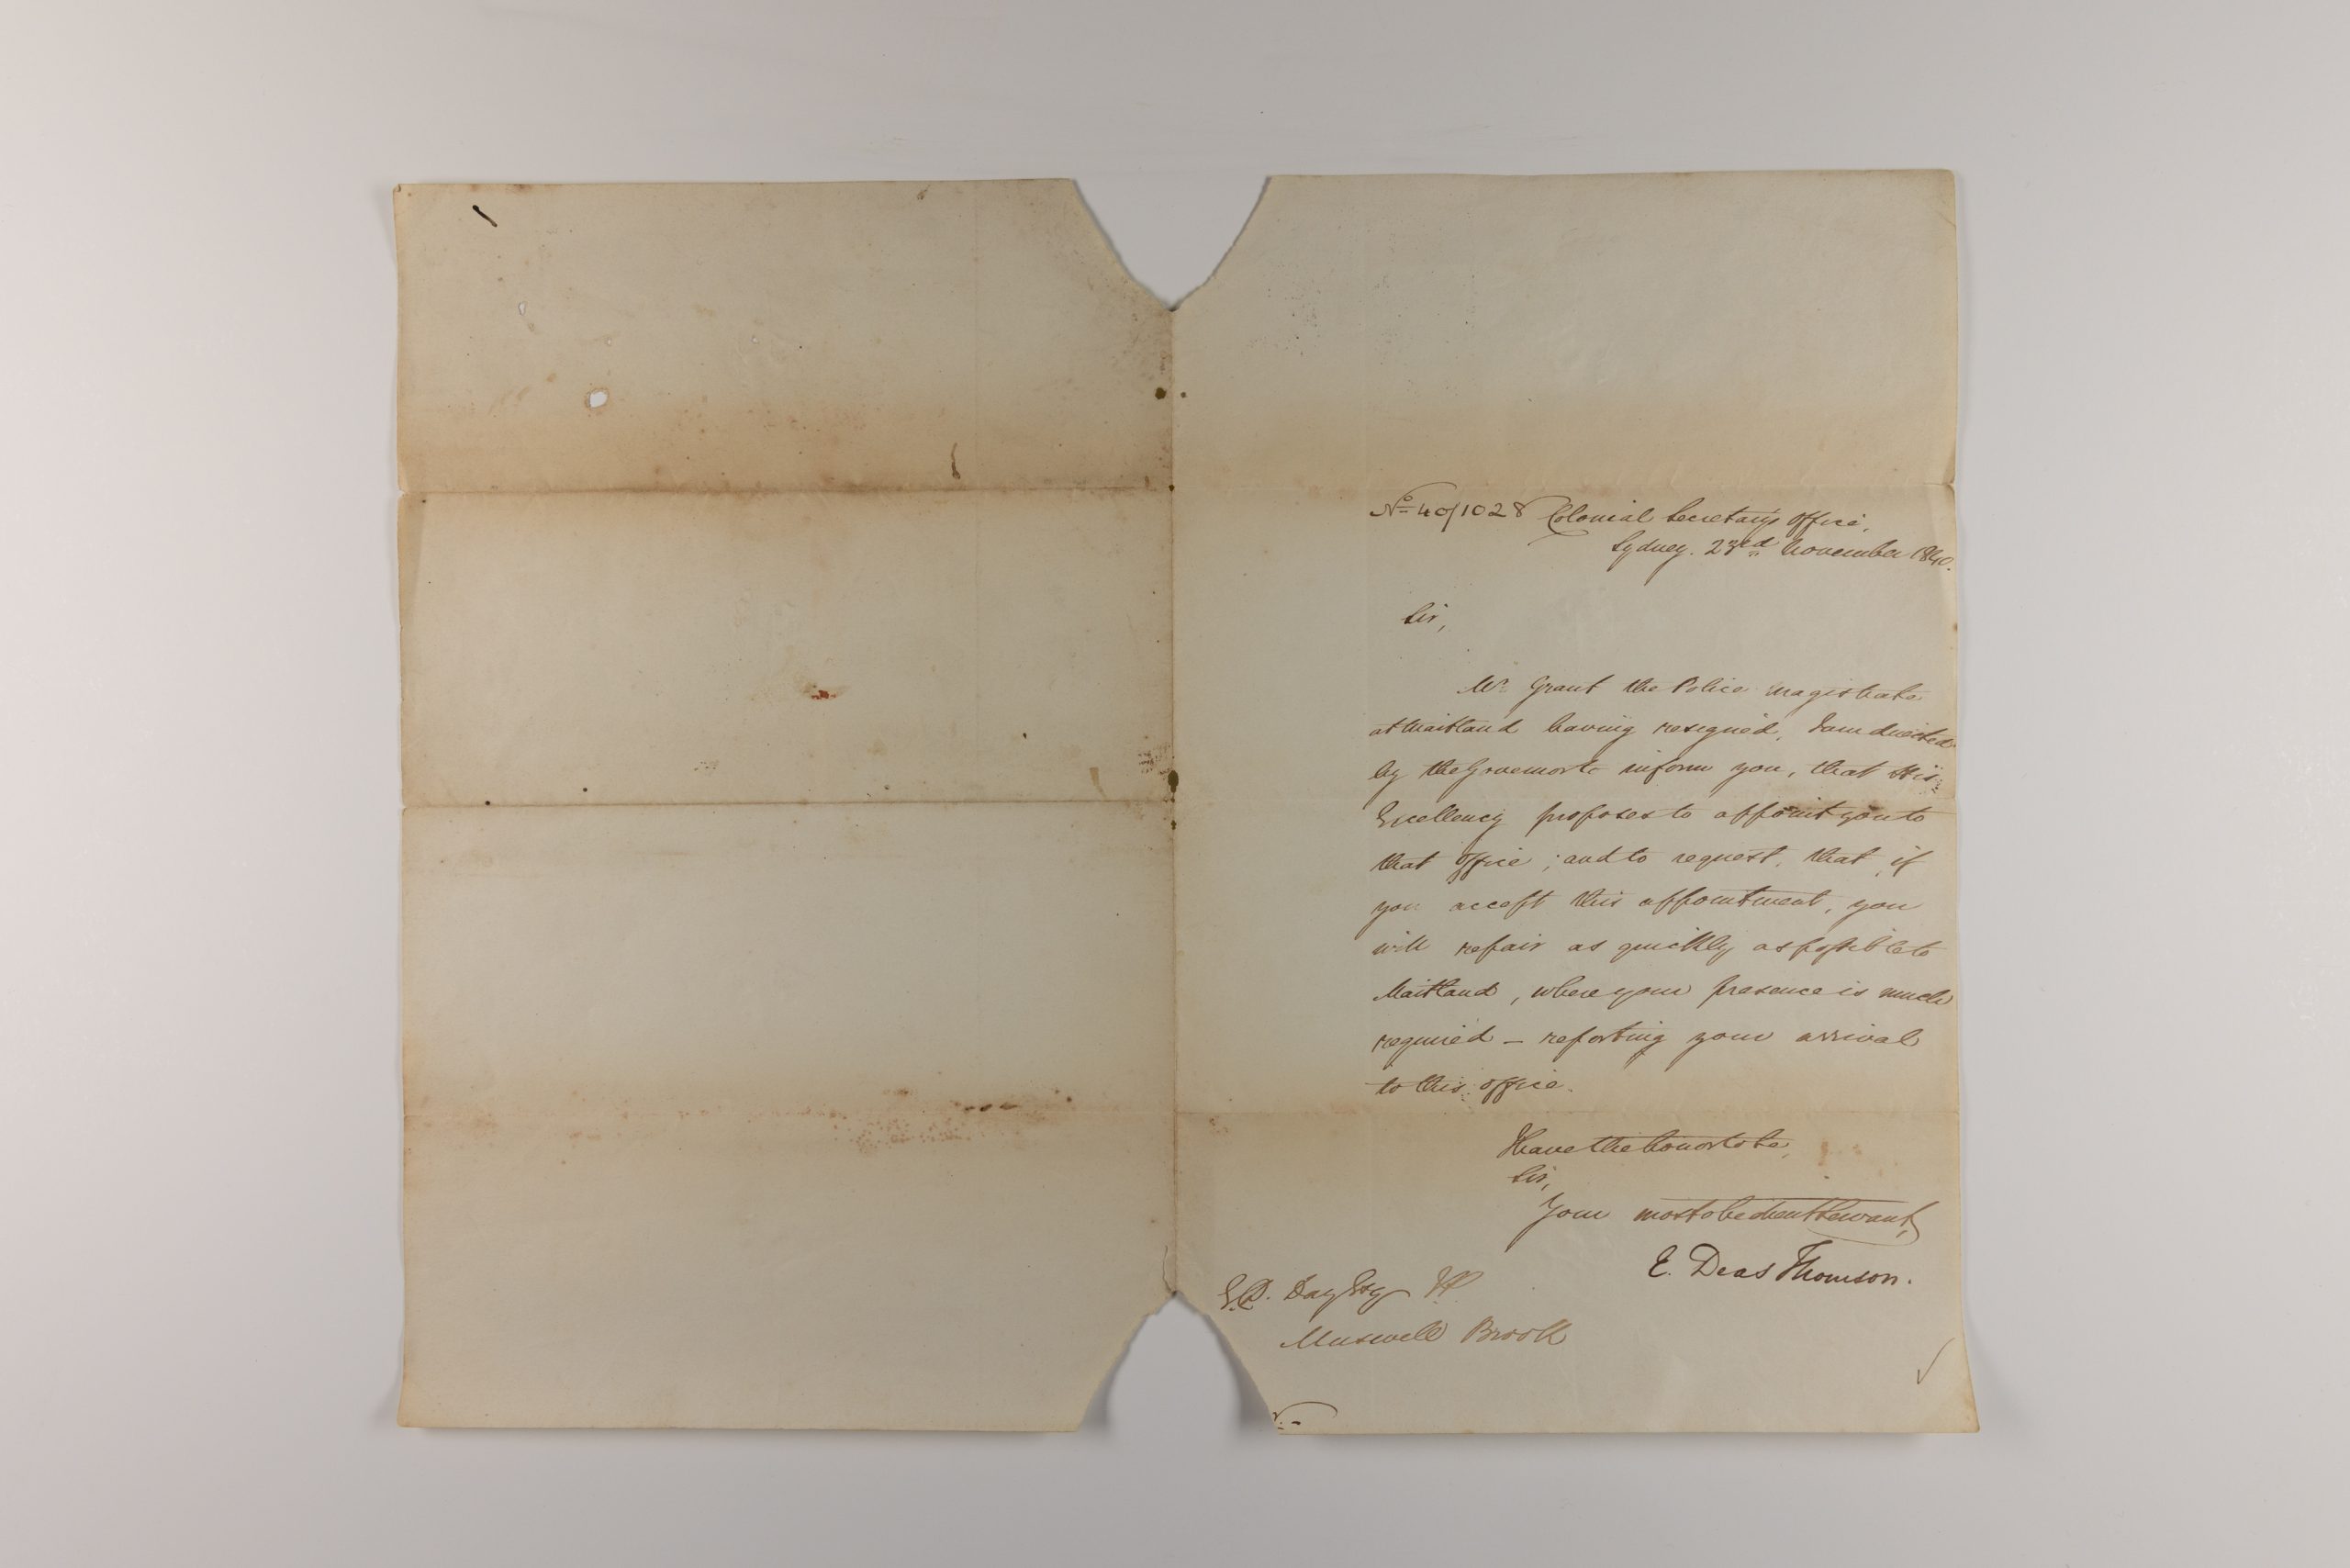 No 40/1028 Colonial Secretary's Office,
Sydney. 23rd November 1840.
Sir,
Mr Grant the Police Magistrate
at Maitland having resigned, I am directed
by the Governor to inform you, that His
Excellency proposes to appoint you to
that Office; and to request, that, if
you accept this appointment, you
will repair as quickly as possible to
Maitland, where your presence is much
required – reporting your arrival
to this office.
I have the honor to be,
Sir,
Your most obedient Servant,
E. Deas Thomson.
E.D. Day Esq JP
Muswell Brook